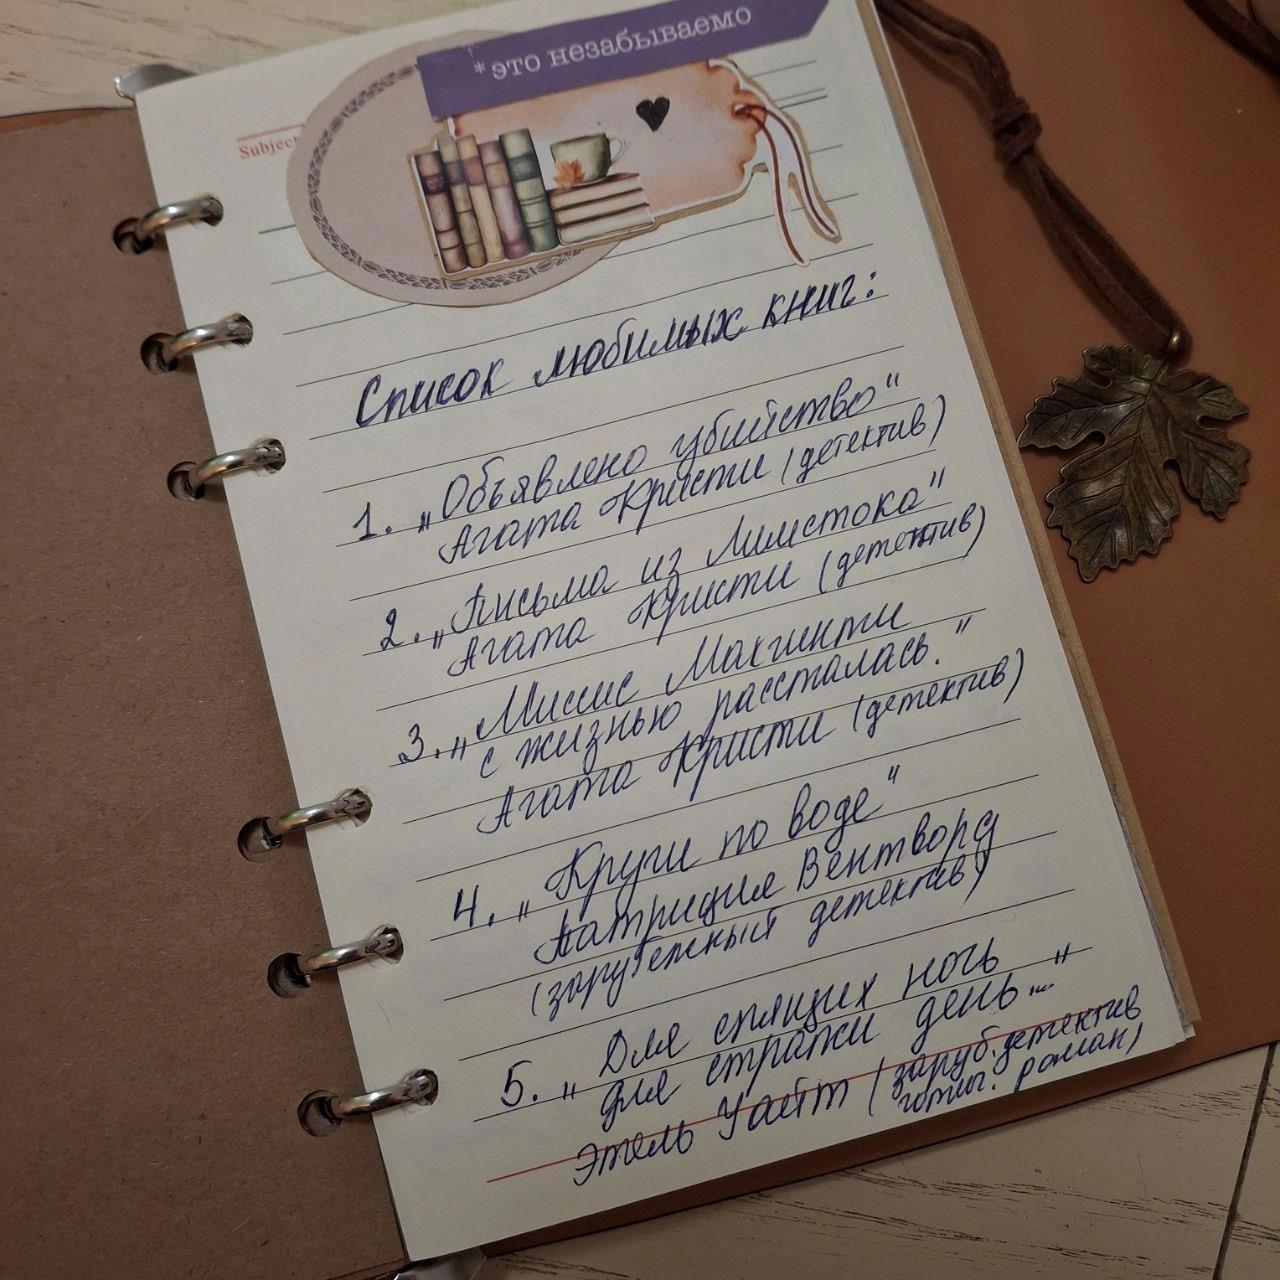 *это незабываемо
Subject
Список любимых книг:
1. „Объявлено убийство"
Агата Кристи (детектив)
2. „Письма из Лимстока"
Агата Кристи (детектив)
3. „Миссис Макгинти
с жизнью рассталась."
Агата Кристи (детектив)
4. „Круги по воде"
Патриция Вентворд
(зарубежный детектив)
5. „Для спящих ночь
для стражи день..."
Этель Уайт (заруб. детектив
готич. роман)